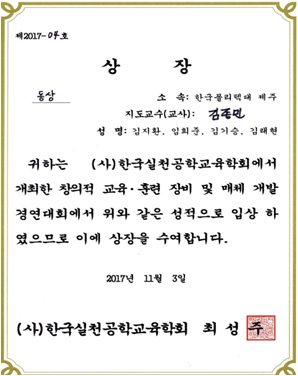 제2017-04호
상 장
동상
소 속: 한국폴리텍대 제주
지도교수(교사): 김종민
성 명: 김지환, 임희준, 김기승, 김태현
귀하는 (사)한국실천공학교육학회에서
개최한 창의적 교육·훈련 장비 및 매체 개발
경연대회에서 위와 같은 성적으로 입상 하
였으므로 이에 상장을 수여합니다.
2017년 11월 3일
(사)한국실천공학교육학회 최 성 주